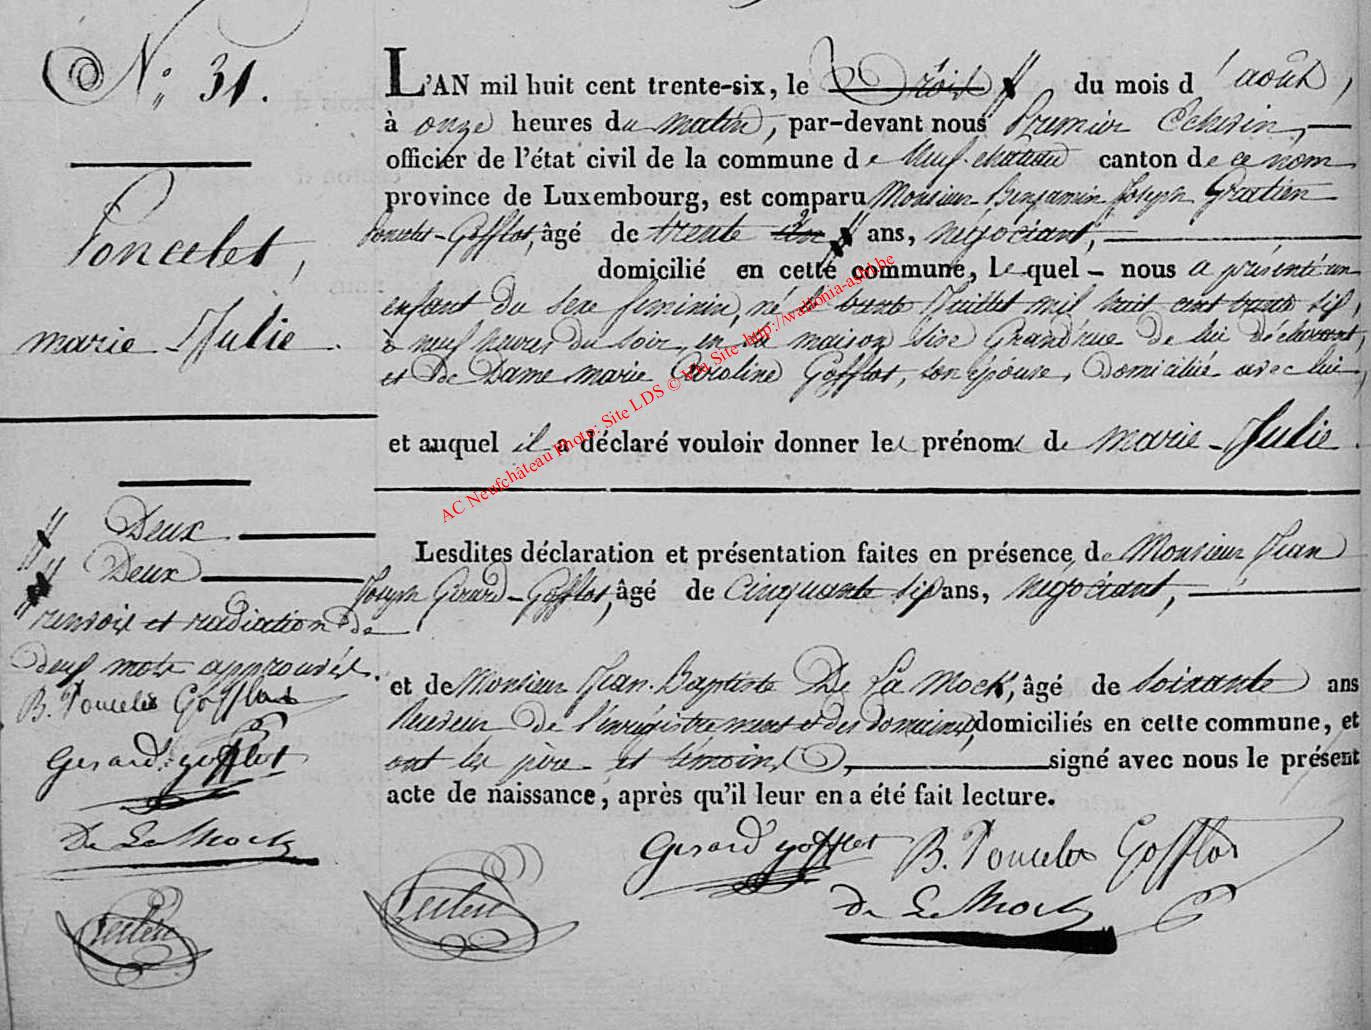 N.° 31.
Poncelet,
marie-Julie.
L'AN mil huit cent trente-six, le trois # du mois d'août,
à onze heures du matin, par-devant nous Premier Echevin,
officier de l'état civil de la commune de Neufchateau canton de ce nom
province de Luxembourg, est comparu Monsieur Benjamin Joseph Gratien
Poncelet-Gofflot, âgé de trente un # ans, négociant,
domicilié en cette commune, lequel nous a présenté un
enfant du sexe feminin, né le trente Juillet mil huit cent trente six,
à neuf heures du soir, en sa maison sise Grand'rue de lui déclarant,
et de Dame marie Caroline Gofflot, son épouse, domiciliée avec lui,
et auquel il a déclaré vouloir donner les prénoms de marie-Julie.
# Deux.
## Deux
renvois et radiation de
deux mots approuvés.
B. Poncelet Gofflot
Gerard gofflot
De La Mock
Lesdites déclaration et présentation faites en présence de Monsieur Jean
Joseph Gerard-Gofflot, âgé de cinquante six ans, négociant,
et de Monsieur Jean-Baptiste De La Mock, âgé de soixante ans
Receveur de l'enrégistrement et des domaines, domiciliés en cette commune, et
ont les père et témoins, signé avec nous le présent
acte de naissance, après qu'il leur en a été fait lecture.
Gerard gofflot B. Poncelet Gofflot
De La Mock
AC Neufchâteau Photo: Site LDS © http://wallonia-asbl.be